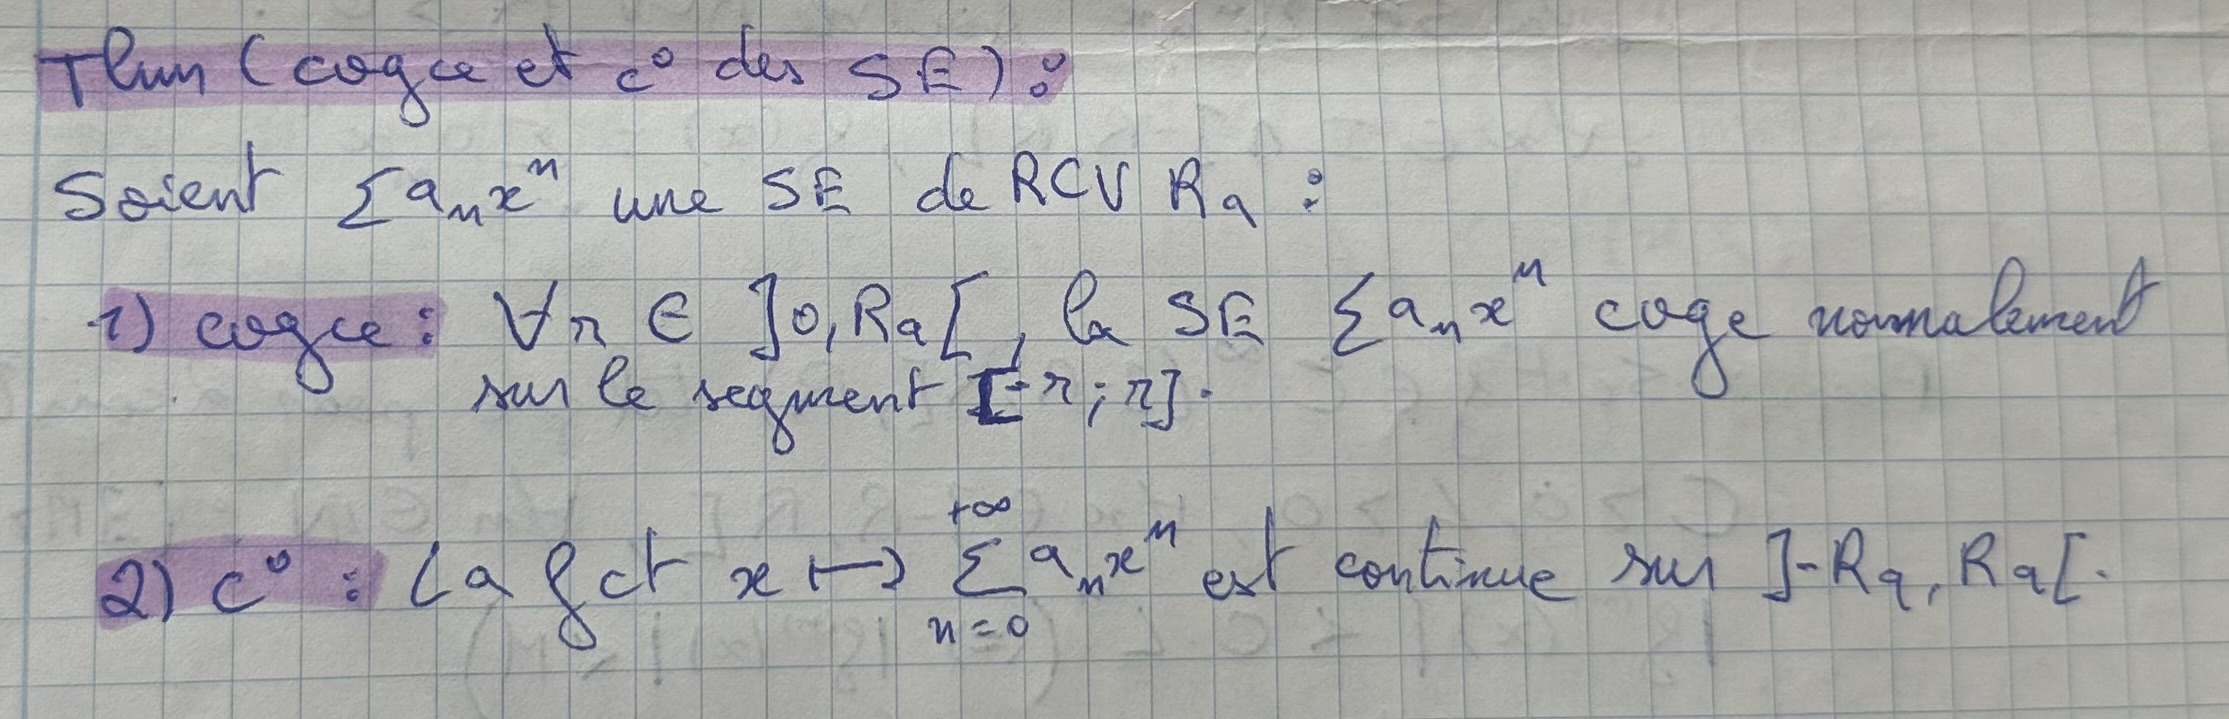 Thm (cogce et c° des SE) :
Soient ∑aₙxⁿ une SE de RCV Ra :
1) cogce : ∀r ∈ ]0, Ra[, la SE ∑aₙxⁿ coge normalement
sur le segment [-r ; r].
2) c° : La fct x ↦ ∑_{n=0}^{+∞} aₙxⁿ est continue sur ]-Ra, Ra[.